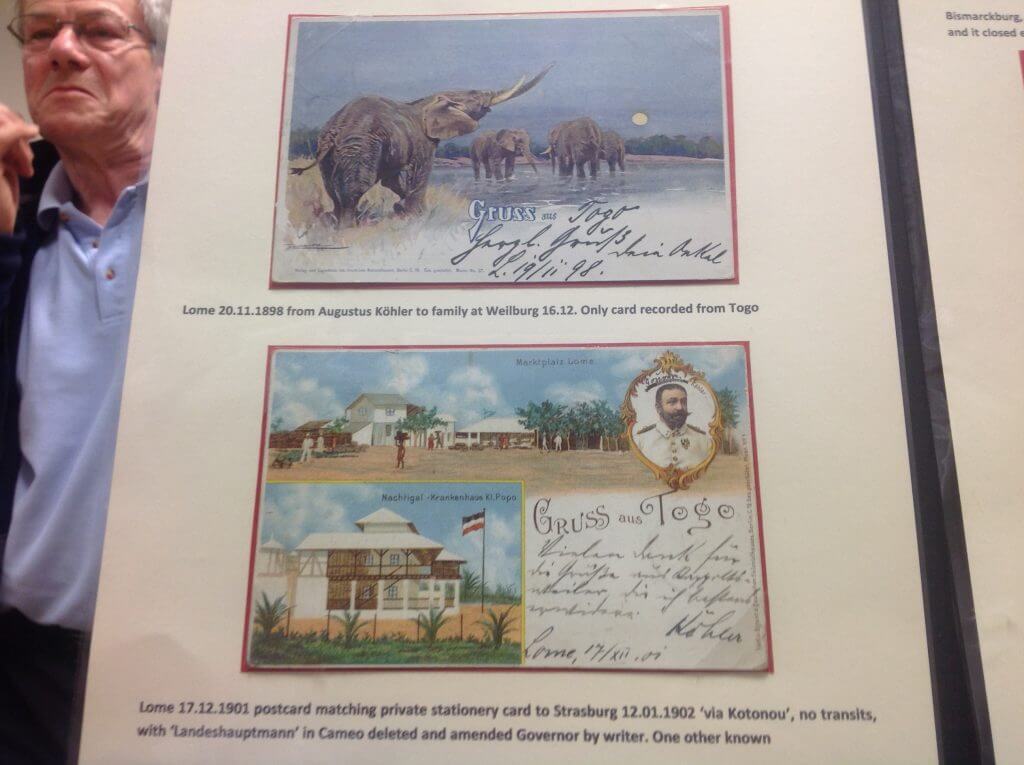 Bismarckburg,
and it closed e
Gruss aus Togo
Herzl. Gruß Dein Onkel
L. 19/11 98.
Lome 20.11.1898 from Augustus Köhler to family at Weilburg 16.12. Only card recorded from Togo
Marktplatz Lome.
Nachtigal-Krankenhaus Kl. Popo
Gruss aus Togo
Vielen Dank für
die Grüße aus Rappolts-
weiler, die ich bestens
erwidere.
Köhler
Lome, 17/XII. 01
Lome 17.12.1901 postcard matching private stationery card to Strasburg 12.01.1902 ‘via Kotonou’, no transits,
with ‘Landeshauptmann’ in Cameo deleted and amended Governor by writer. One other known